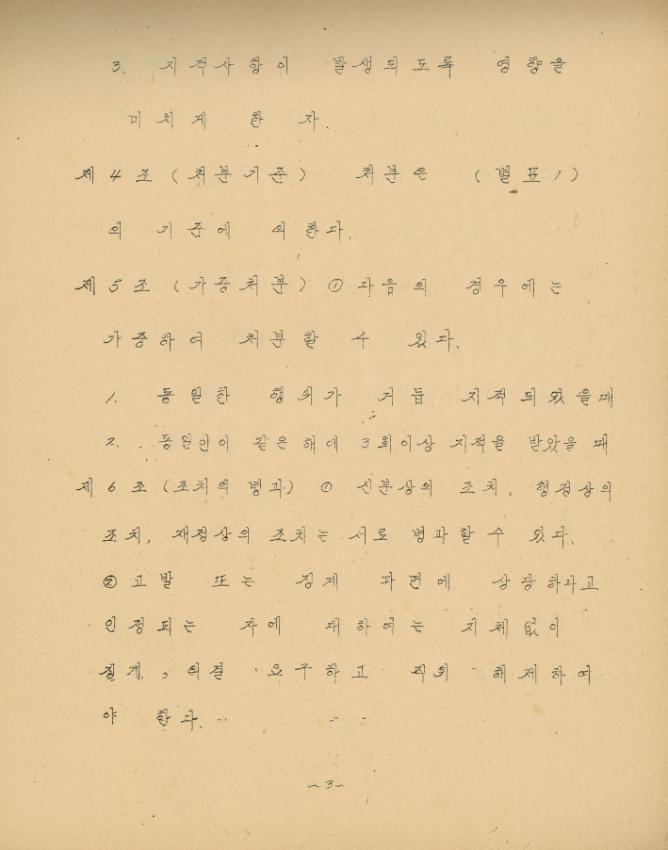 3. 지적사항이 발생되도록 영향을
미치게 한 자.
제4조(처분기준) 처분은 (별표1)
의 기준에 의한다.
제5조(가중처분) ① 다음의 경우에는
가중하여 처분할 수 있다.
1. 동일한 행위가 거듭 지적되었을때
2. 동일인이 같은해에 3회이상 지적을 받았을 때
제6조(조치의 병과) ① 신분상의 조치, 행정상의
조치, 재정상의 조치는 서로 병과할 수 있다.
② 고발 또는 징계 파면에 상당하다고
인정되는 자에 대하여는 지체없이
징계, 의결 요구하고 직위 해제하여
야 한다.
-3-